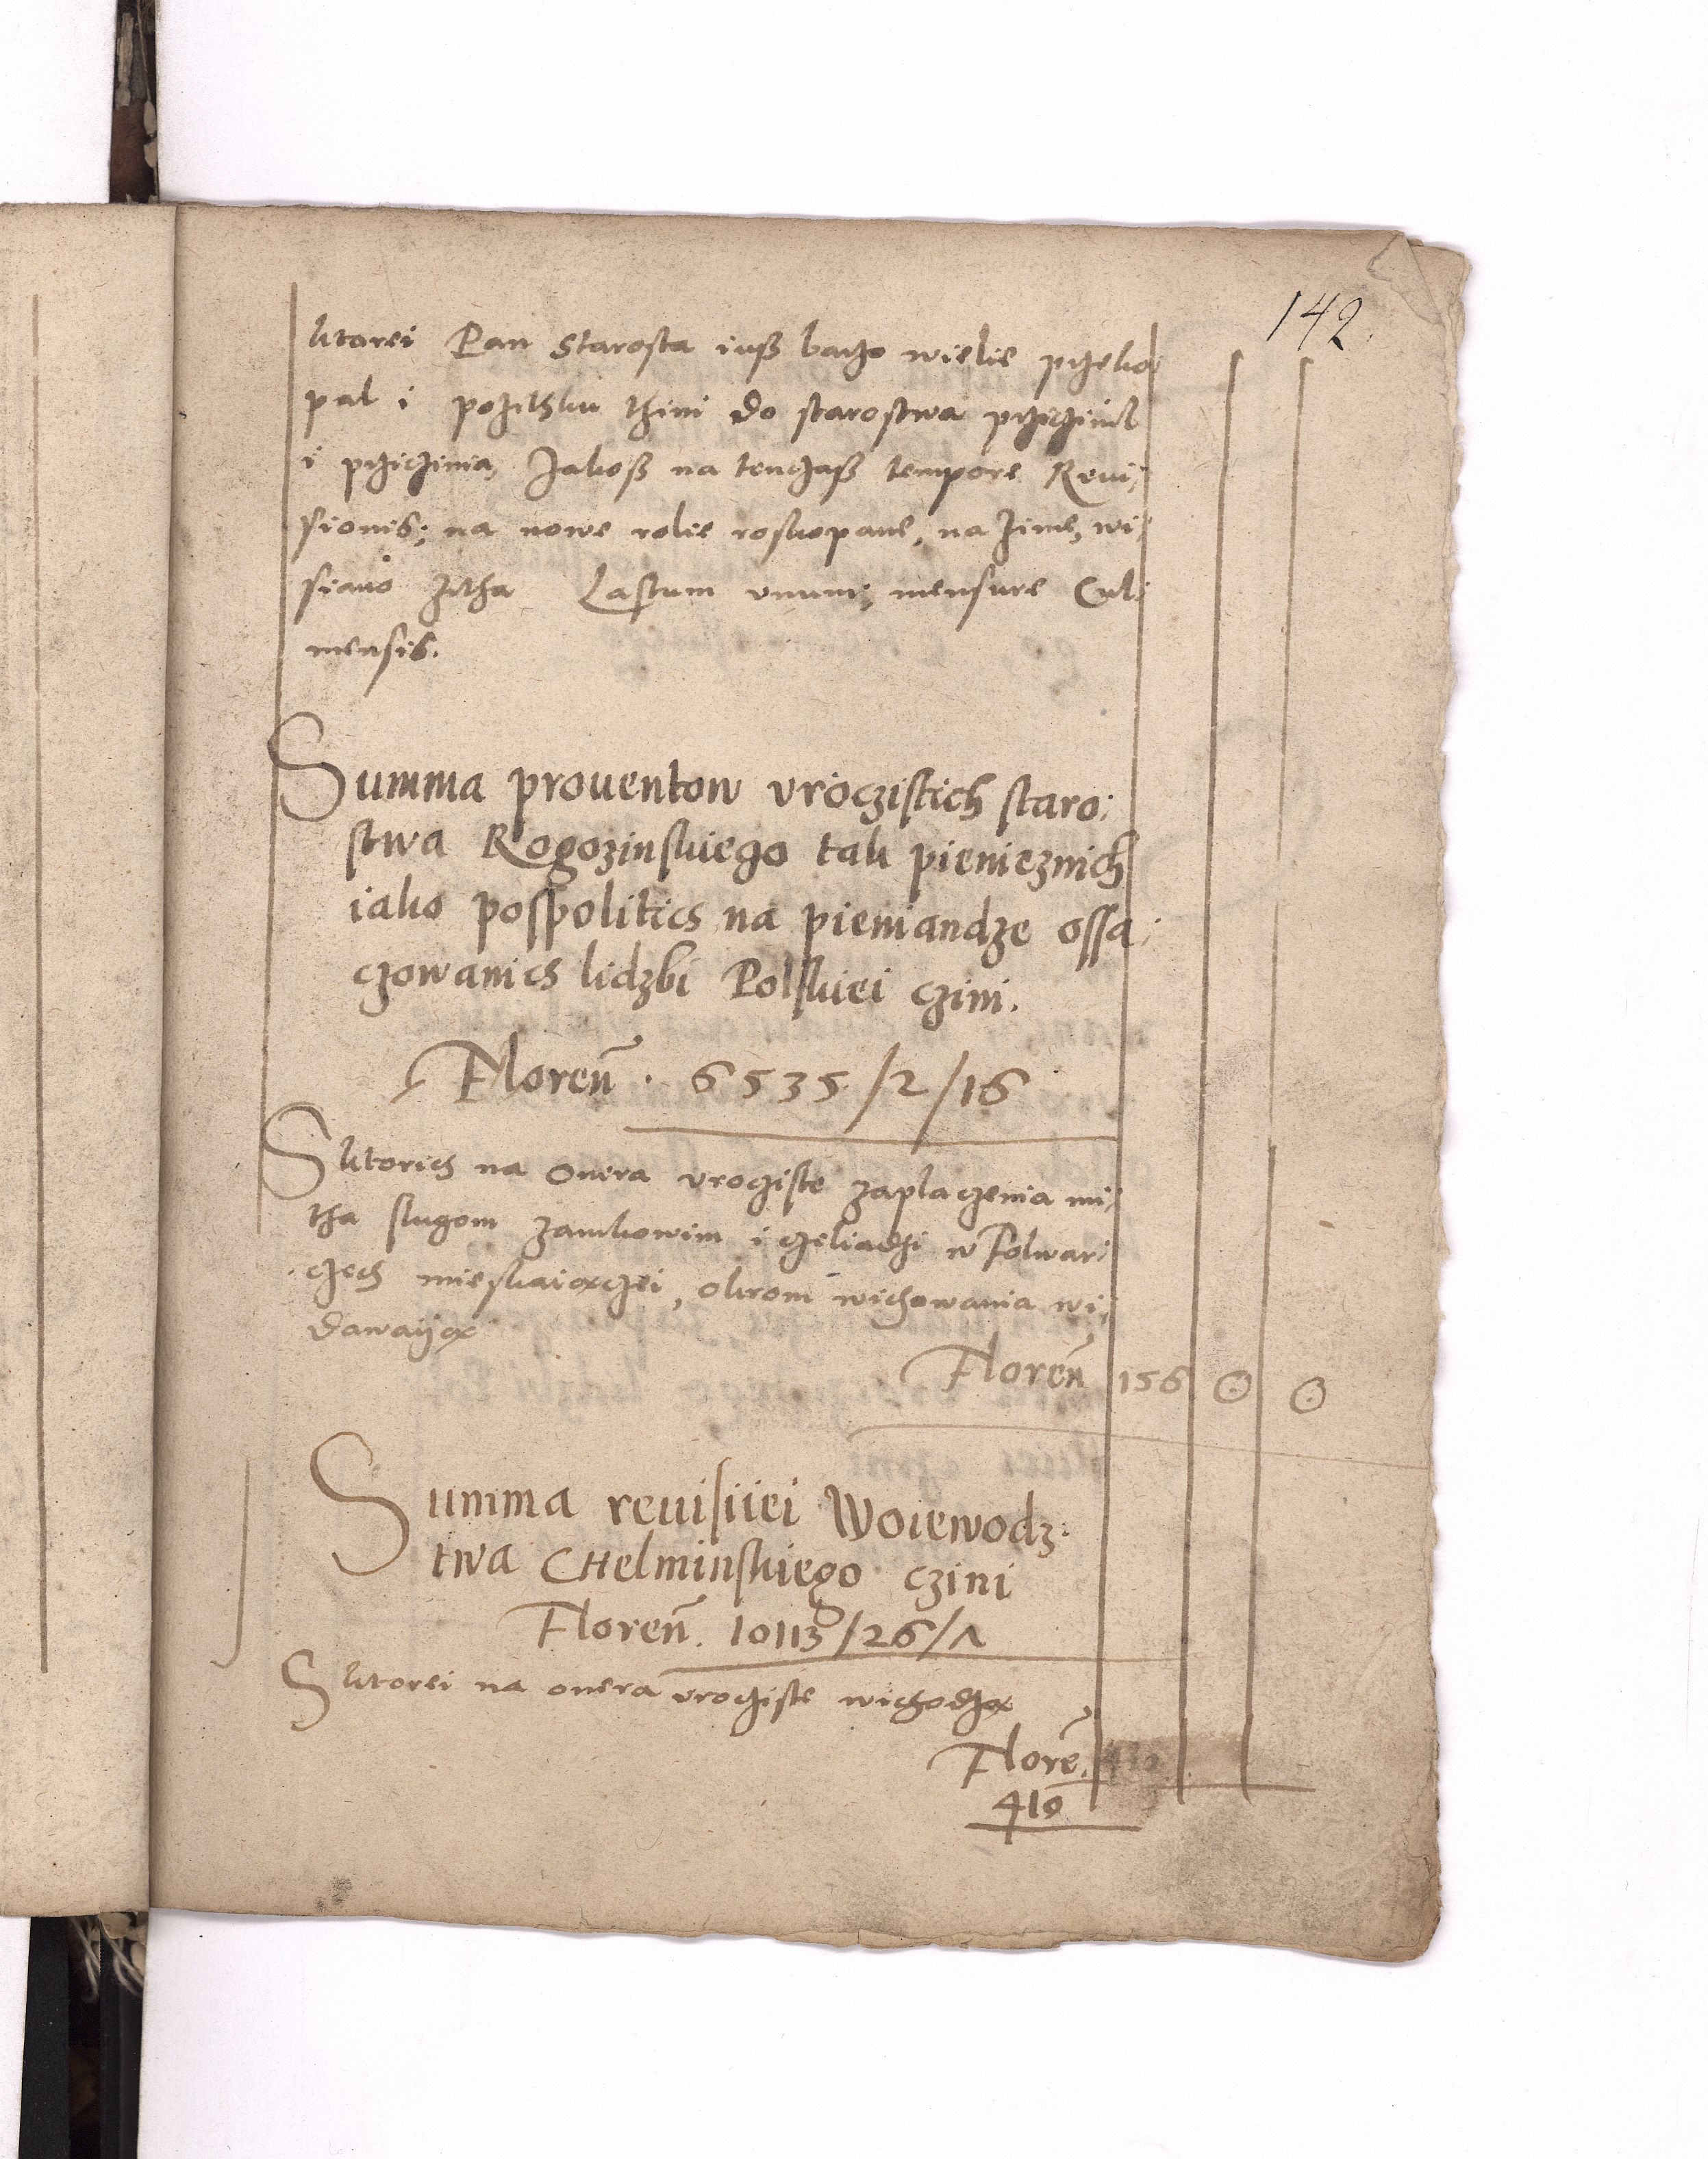 142.
ktorei Pan Starosta iuß baczo wielie przeko
pal i pozithku thim do starostwa prziczinil
i prziczinia, Jakoß na tenczaß tempore Reui,
sionis; na nowe rolie roskopane, na zime, wi
siano zitha Lastum vnum, mensure Cul:
mensis.
Summa prouentow vroczistich staro:
stwa Rogozinskiego tak pienieznich
iako pospolitich na pieniandze ossa:
czowanich lidzbi Polskiei czini.
Floren̄. 6535/2/16
S ktorich na onera vrocziste zaplaczenia mi
tha slugom zamkowim i czeliadzi w Folwar:
czech mieskaiączei, okrom wichowania wi,
dawaiją
Floren̄ 156 0 0
Summa reuisiiei Woiewodz:
twa CHelminskiego czini
Floren̄. 10113/26/1
S ktorei na onera vrocziste wichodzą
Florē. 410
410